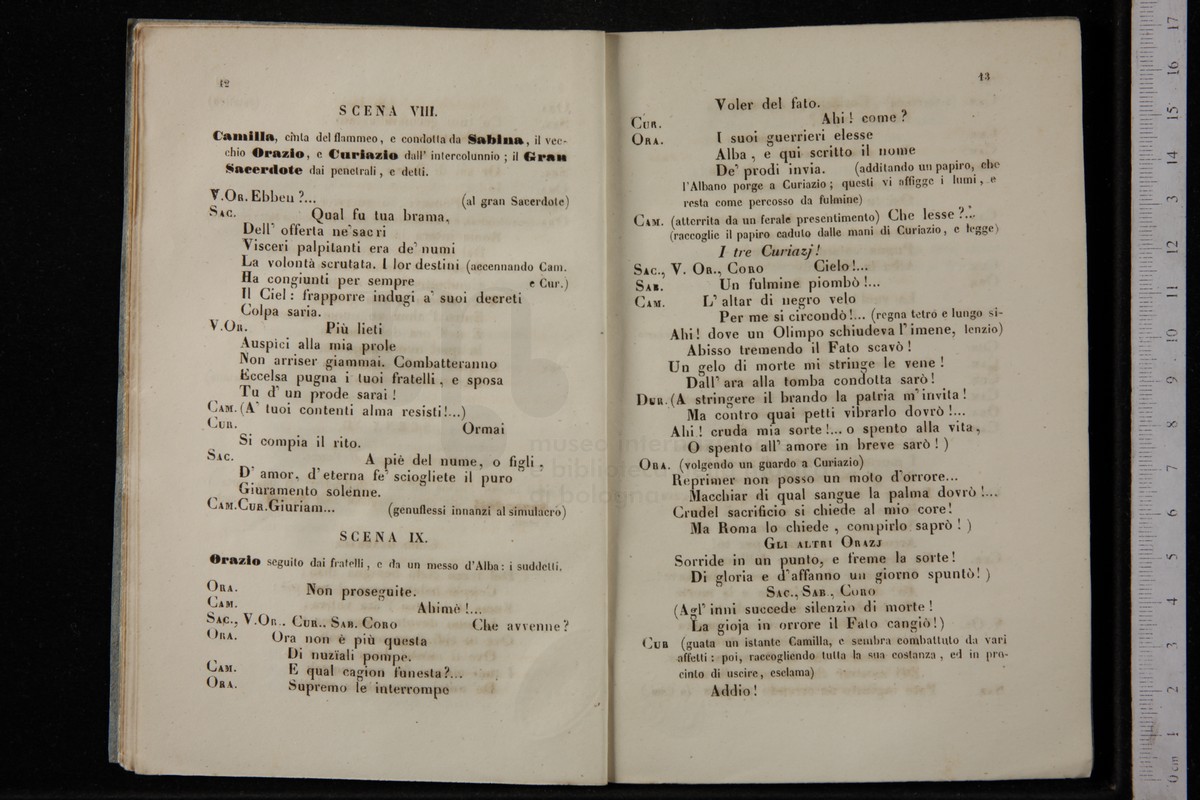 12
SCENA VIII.
Camilla, cinta del flammeo, e condotta da Sabina, il vec-
chio Orazio, e Curiazio dall' intercolunnio; il Gran
Sacerdote dai penetrali, e detti.
V.OR. Ebben?... (al gran Sacerdote)
SAC. Qual fu tua brama,
Dell' offerta ne' sacri
Visceri palpitanti era de' numi
La volontà scrutata. I lor destini (accennando Cam.
Ha congiunti per sempre e Cur.)
Il Ciel: frapporre indugi a' suoi decreti
Colpa saria.
V.OR. Più lieti
Auspici alla mia prole
Non arriser giammai. Combatteranno
Eccelsa pugna i tuoi fratelli, e sposa
Tu d' un prode sarai!
CAM. (A' tuoi contenti alma resisti!...)
CUR. Ormai
Si compia il rito.
SAC. A piè del nume, o figli,
D' amor, d' eterna fe' sciogliete il puro
Giuramento solenne.
CAM.CUR.Giuriam... (genuflessi innanzi al simulacro)
SCENA IX.
Orazio seguito dai fratelli, e da un messo d'Alba: i suddetti.
ORA. Non proseguite.
CAM. Ahimè!...
SAC., V.OR., CUR., SAB. CORO Che avvenne?
ORA. Ora non è più questa
Di nuzïali pompe.
CAM. E qual cagion funesta?...
ORA. Supremo le interrompe
13
Voler del fato.
CUR. Ahi! come?
ORA. I suoi guerrieri elesse
Alba, e qui scritto il nome
De' prodi invia. (additando un papiro, che
l'Albano porge a Curiazio; questi vi affigge i lumi, e
resta come percosso da fulmine)
CAM. (atterrita da un ferale presentimento) Che lesse?...
(raccoglie il papiro caduto dalle mani di Curiazio, e legge)
I tre Curiazj!
SAC., V. OR., CORO Cielo!...
SAB. Un fulmine piombò!...
CAM. L' altar di negro velo
Per me si circondò!... (regna tetro e lungo si-
Ahi! dove un Olimpo schiudeva l' imene, lenzio)
Abisso tremendo il Fato scavò!
Un gelo di morte mi stringe le vene!
Dall' ara alla tomba condotta sarò!
DUR. (A stringere il brando la patria m' invita!
Ma contro quai petti vibrarlo dovrò!...
Ahi! cruda mia sorte!... o spento alla vita,
O spento all' amore in breve sarò!)
ORA. (volgendo un guardo a Curiazio)
Reprimer non posso un moto d'orrore...
Macchiar di qual sangue la palma dovrò!...
Crudel sacrificio si chiede al mio core!
Ma Roma lo chiede, compirlo saprò!)
GLI ALTRI ORAZJ
Sorride in un punto, e freme la sorte!
Di gloria e d'affanno un giorno spuntò!)
SAC., SAB., CORO
(Agl' inni succede silenzio di morte!
La gioja in orrore il Fato cangiò!)
CUR (guata un istante Camilla, e sembra combattuto da vari
affetti: poi, raccogliendo tutta la sua costanza, ed in pro-
cinto di uscire, esclama)
Addio!
museo inter
e bibliote
di bologna
0 cm 1 2 3 4 5 6 7 8 9 10 11 12 13 14 15 16 17